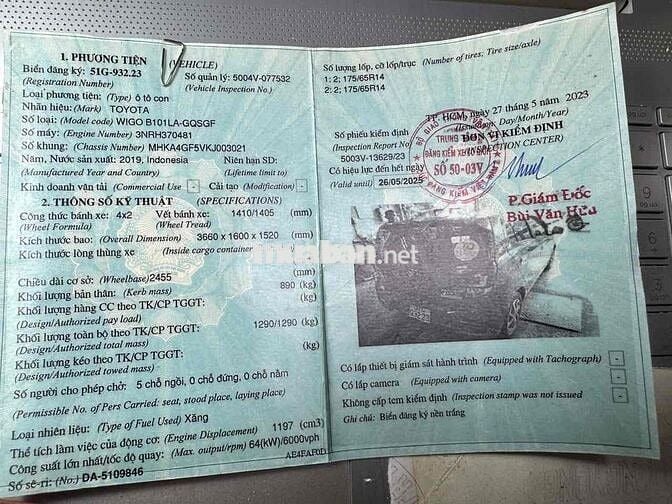 1. PHƯƠNG TIỆN (VEHICLE)
Biển đăng ký: 51G-932.23 Số quản lý: 5004V-077532
(Registration Number) (Vehicle Inspection No.)
Loại phương tiện: (Type) ô tô con
Nhãn hiệu: (Mark) TOYOTA
Số loại: (Model code) WIGO B101LA-GQSGF
Số máy: (Engine Number) 3NRH370481
Số khung: (Chassis Number) MHKA4GF5VKJ003021
Năm, Nước sản xuất: 2019, Indonesia Niên hạn SD:
(Manufactured Year and Country) (Lifetime limit to)
Kinh doanh vận tải (Commercial Use) - Cải tạo (Modification) -
2. THÔNG SỐ KỸ THUẬT (SPECIFICATIONS)
Công thức bánh xe: 4x2 Vết bánh xe: 1410/1405 (mm)
(Wheel Formula) (Wheel Tread)
Kích thước bao: (Overall Dimension) 3660 x 1600 x 1520 (mm)
Kích thước lòng thùng xe (Inside cargo container)
(mm)
Chiều dài cơ sở: (Wheelbase) 2455 (mm)
Khối lượng bản thân: (Kerb mass) 890 (kg)
Khối lượng hàng CC theo TK/CP TGGT: (kg)
(Design/Authorized pay load)
Khối lượng toàn bộ theo TK/CP TGGT: 1290/1290 (kg)
(Design/Authorized total mass)
Khối lượng kéo theo TK/CP TGGT: (kg)
(Design/Authorized towed mass)
Số người cho phép chở: 5 chỗ ngồi, 0 chỗ đứng, 0 chỗ nằm
(Permissible No. of Pers Carried: seat, stood place, laying place)
Loại nhiên liệu: (Type of Fuel Used) Xăng
Thể tích làm việc của động cơ: (Engine Displacement) 1197 (cm3)
Công suất lớn nhất/tốc độ quay: (Max. output/rpm) 64(kW)/6000vph
Số sê-ri: (No.) DA-5109846 AE4FAF0D
Số lượng lốp, cỡ lốp/trục (Number of tires; Tire size/axle)
1: 2; 175/65R14
2: 2; 175/65R14
TP. HCM, ngày 27 tháng 5 năm 2023
(Issued on: Day/Month/Year)
Số phiếu kiểm định ĐƠN VỊ KIỂM ĐỊNH
(Inspection Report No) (INSPECTION CENTER)
5003V-13629/23
Có hiệu lực đến hết ngày
(Valid until) 26/05/2025
TRUNG
ĐĂNG KIỂM XE CƠ GIỚI
SỐ 50-03V
P.Giám Đốc
Bùi Văn Hữu
muaban.net
Có lắp thiết bị giám sát hành trình (Equipped with Tachograph) -
Có lắp camera (Equipped with camera) -
Không cấp tem kiểm định (Inspection stamp was not issued) -
Ghi chú: Biển đăng ký nền trắng